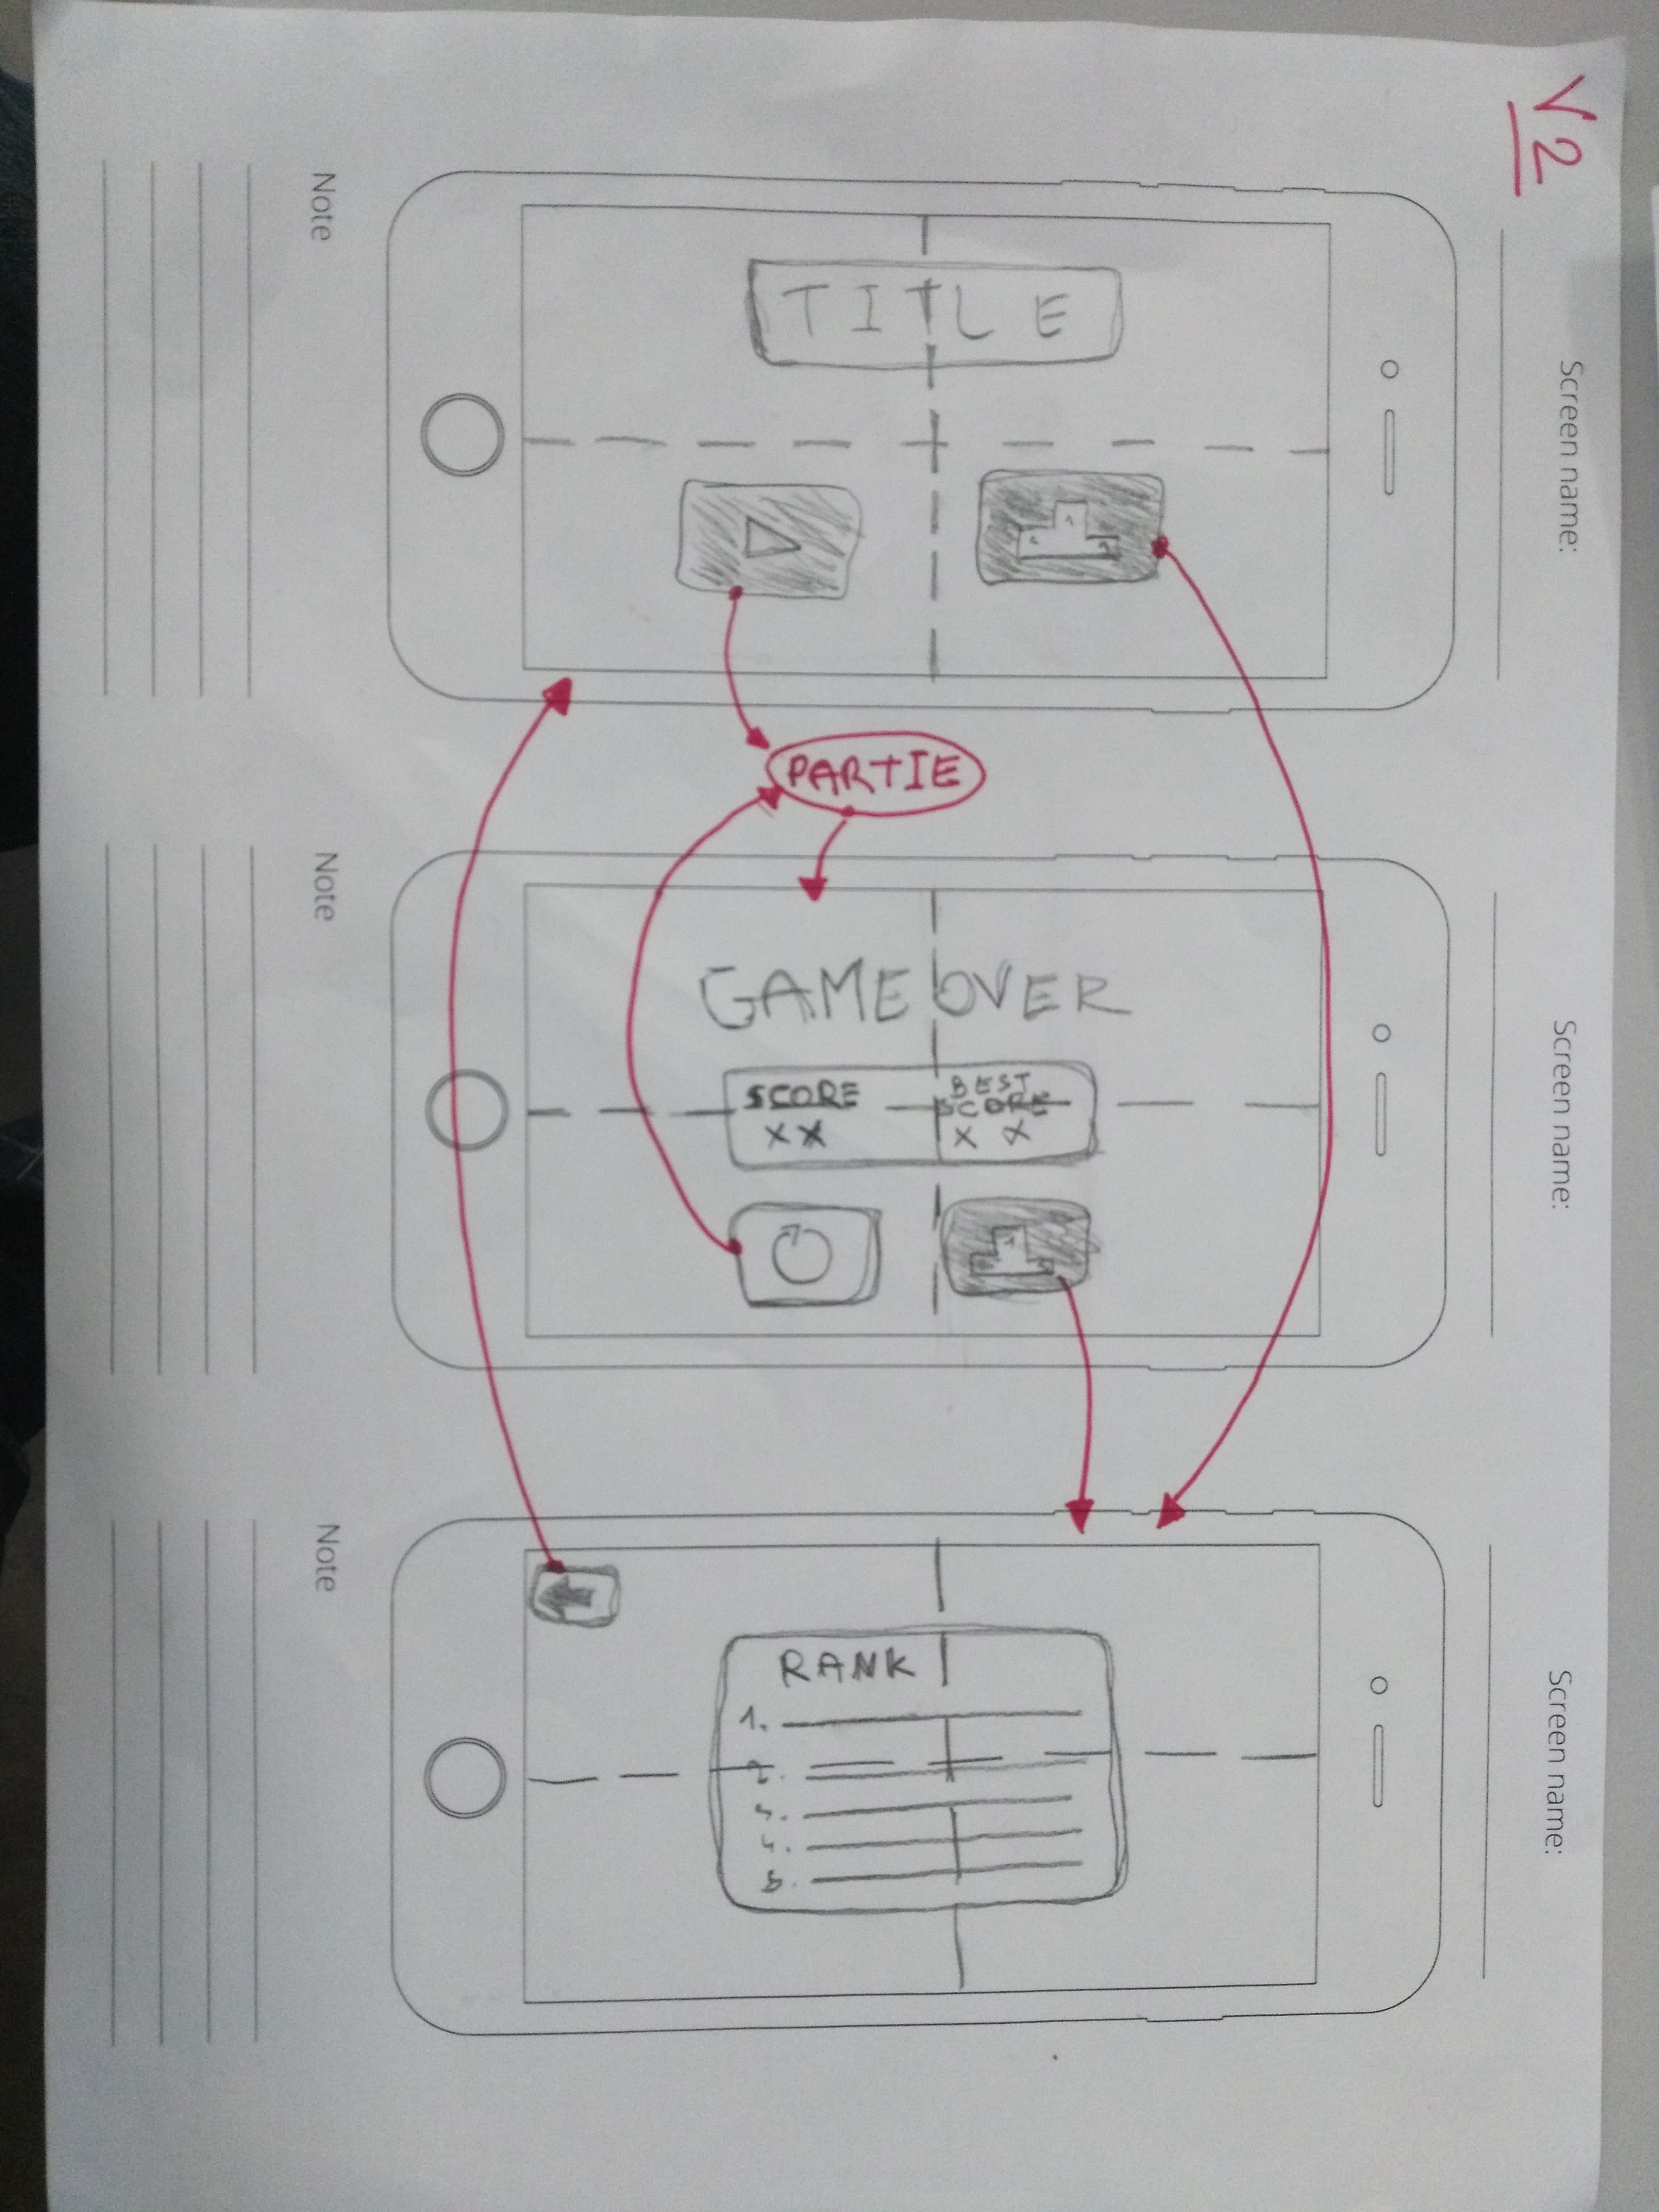 V2
Screen name:
TITLE
1
Note
PARTIE
Screen name:
GAME OVER
SCORE
XX
BEST
SCORE
X X
1
Note
Screen name:
RANK
1.
2.
3.
4.
5.
Note